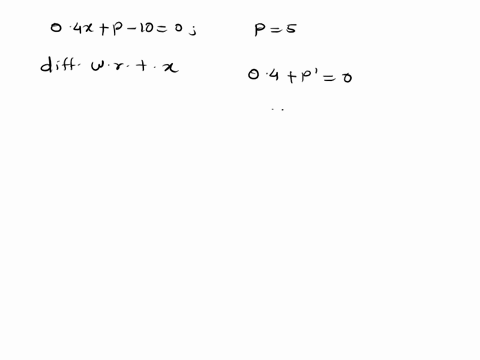 0.4x + p - 10 = 0 ; p = 5
diff. w.r.t. x
0.4 + p' = 0
..